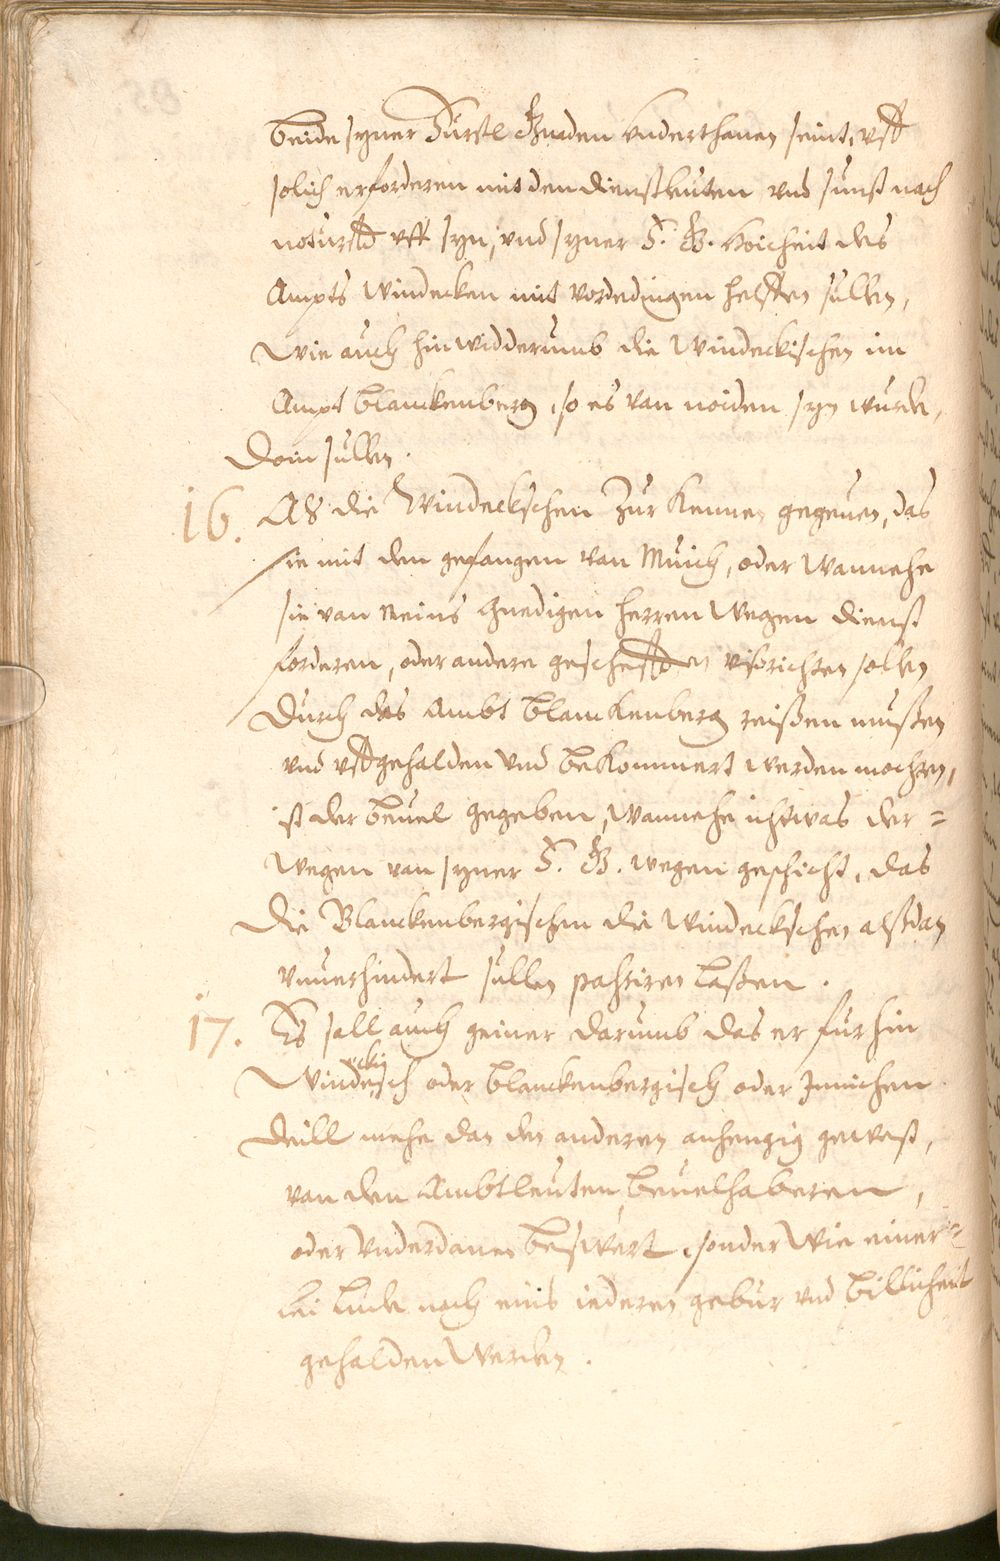 beide syner Fürstl Gnaden vnderthanen seint, vff
solich erforderen mit den dienstleuten vnd sunst nach
noturfft vff syn, vnd syner F. G. Hoicheit des
Ampts Windecken mit verdedingen helffen sullen,
Wie auch hinwidderumb die Windeckischen im
Ampt Blanckenberg, so es van noiden syn wurde,
Doin sullen.
16. Als die Windeckschen zur kennen gegeuen, das
sie mit den gefangen van Much, oder Wannehe
sie van Meins Gnedigen Herren Wegen dienst
forderen, oder andere gescheffden vißrichten sollen
Durch das Ambt Blanckenberg reißen mußen
vnd vffgehalden vnd bekommert werden mochten,
ist der beuel gegeben, Wannehe ichtwas der=
wegen van syner F. G. wegen geschicht, das
Die Blanckenbergischen die Windeckschen alßdan
vnuerhindert sullen passiren laßen.
17. Es sall auch geiner darumb das er fürhin
Windeckisch oder Blanckenbergisch oder Innichen
deill mehe dan den anderen anhengig gewest,
van den Ambtleuten, beuelhaberen,
oder vnderdanen beswert, sonder Wie einer=
lei Lude nach eins iederen gebur vnd billicheit
gehalden Werden.